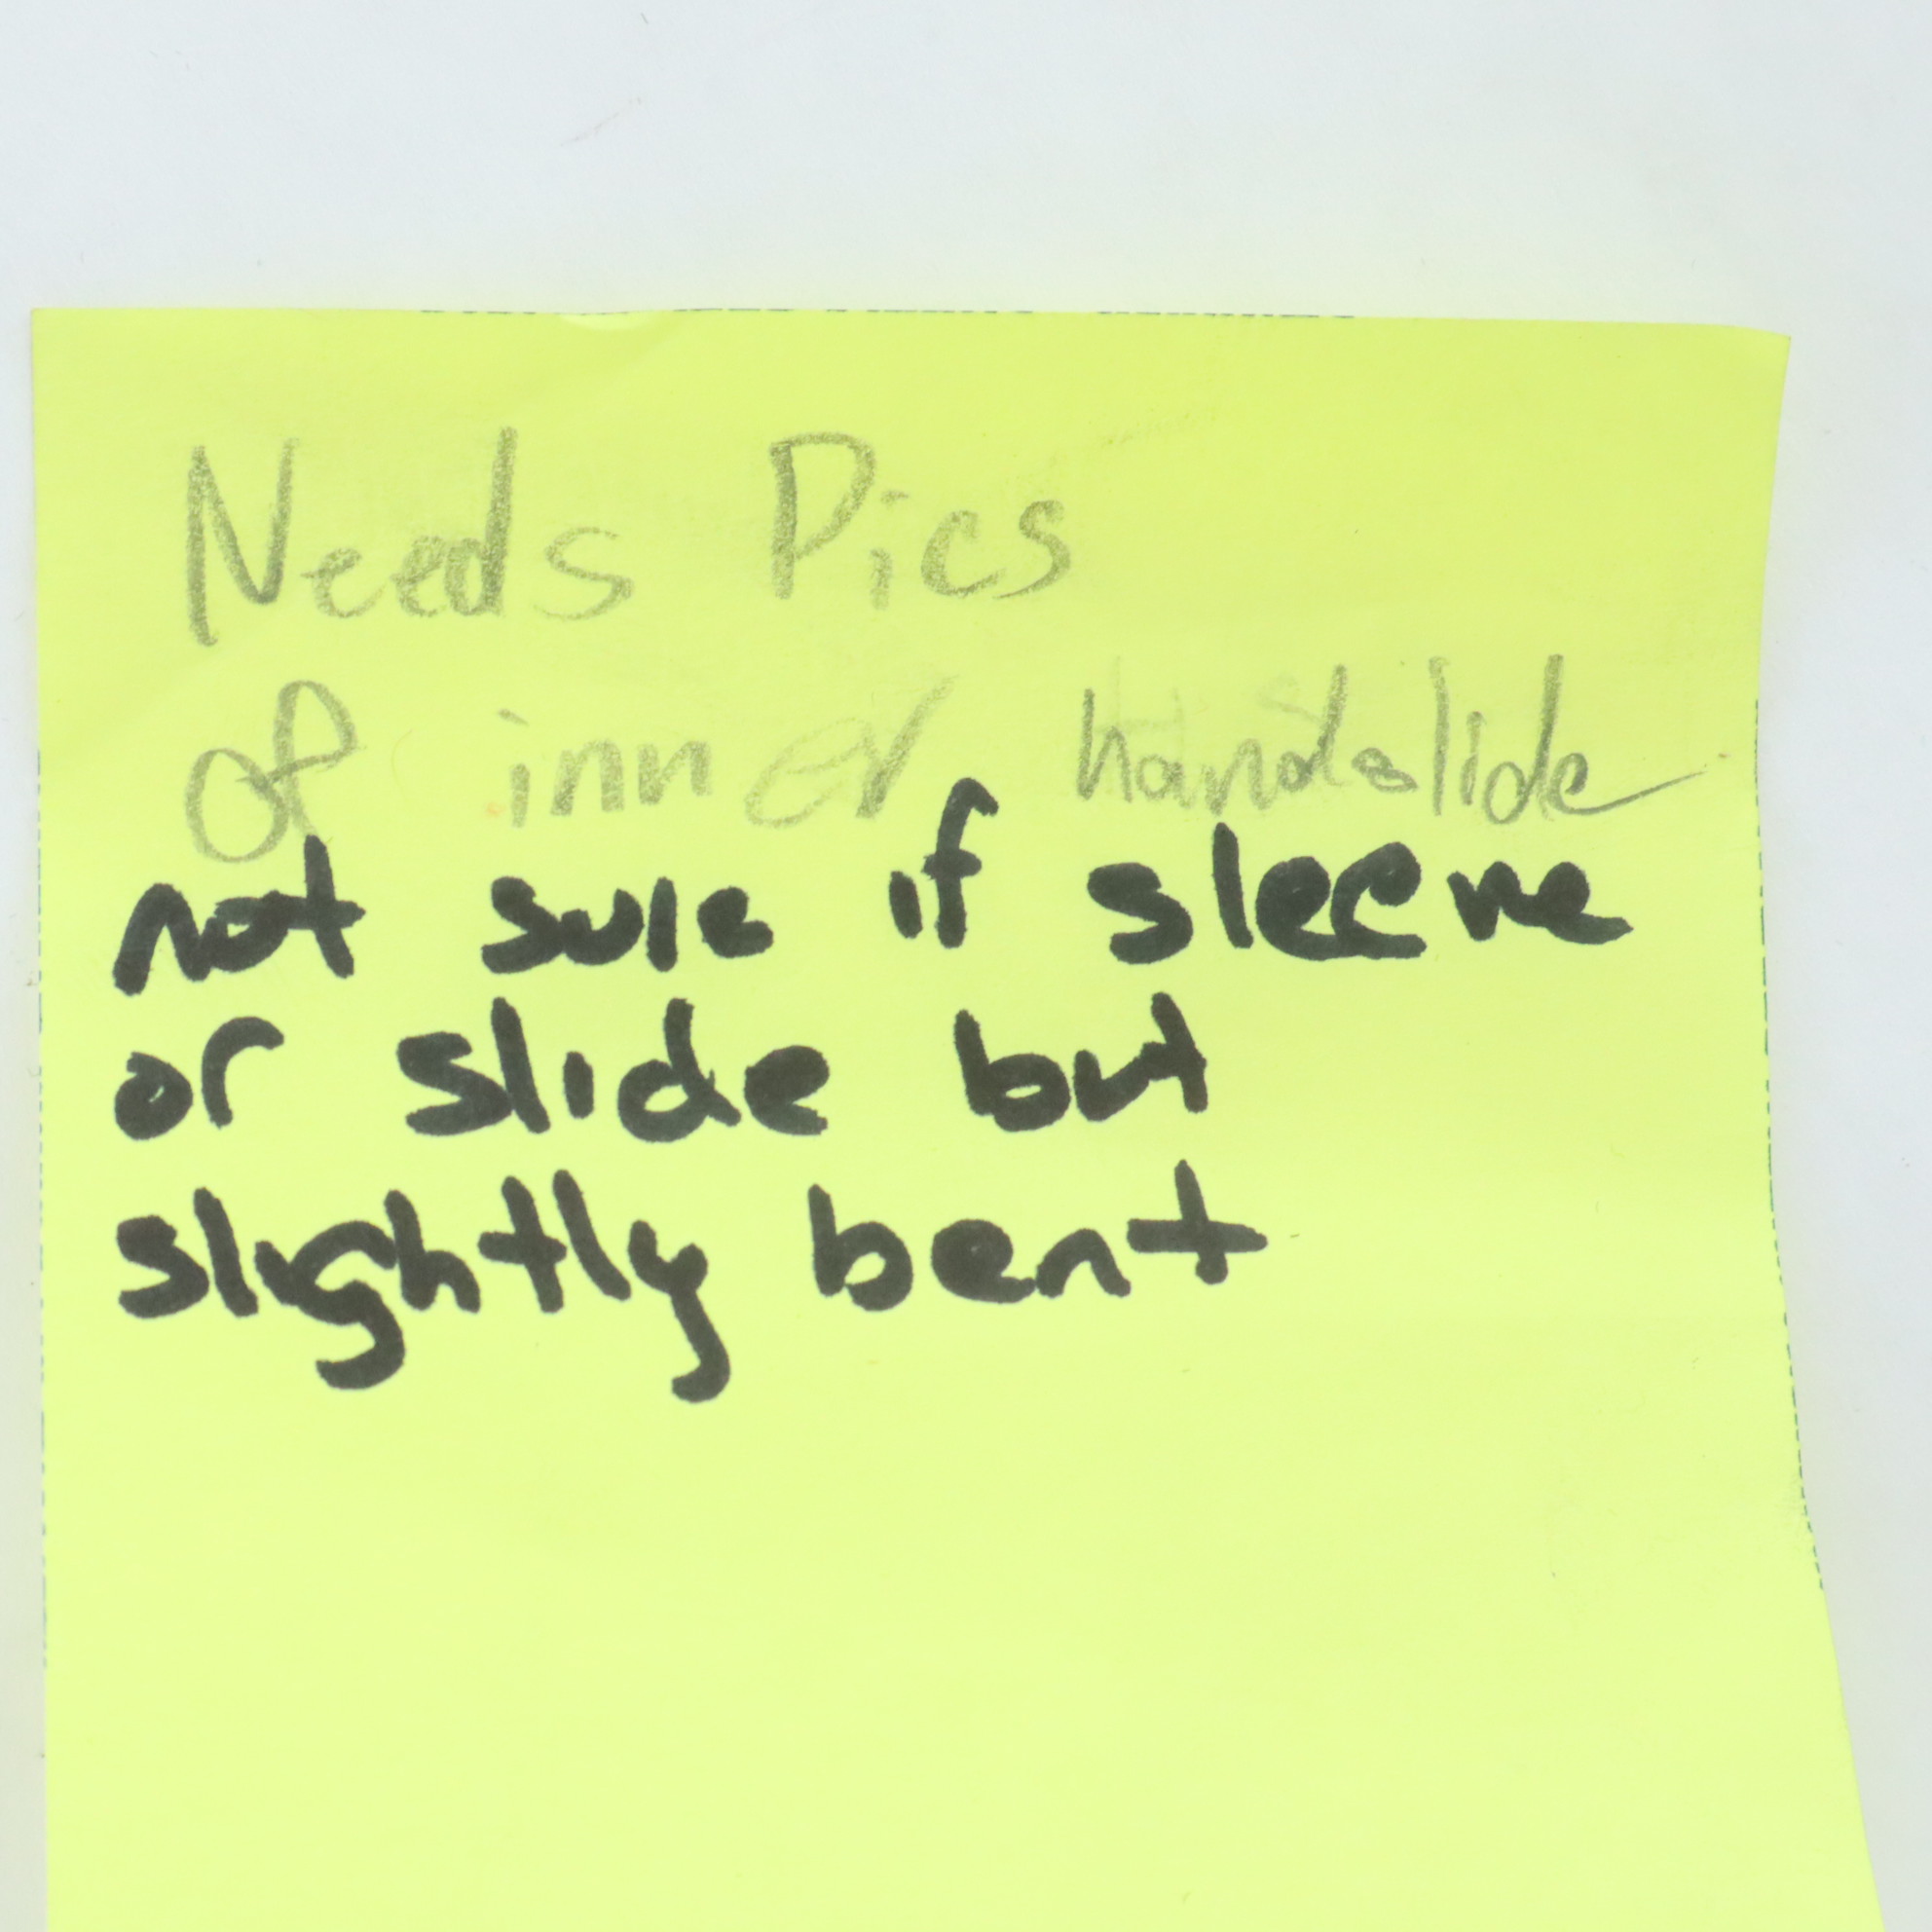 Needs Pics
of inner handslide
not sure if sleeve
or slide but
slightly bent